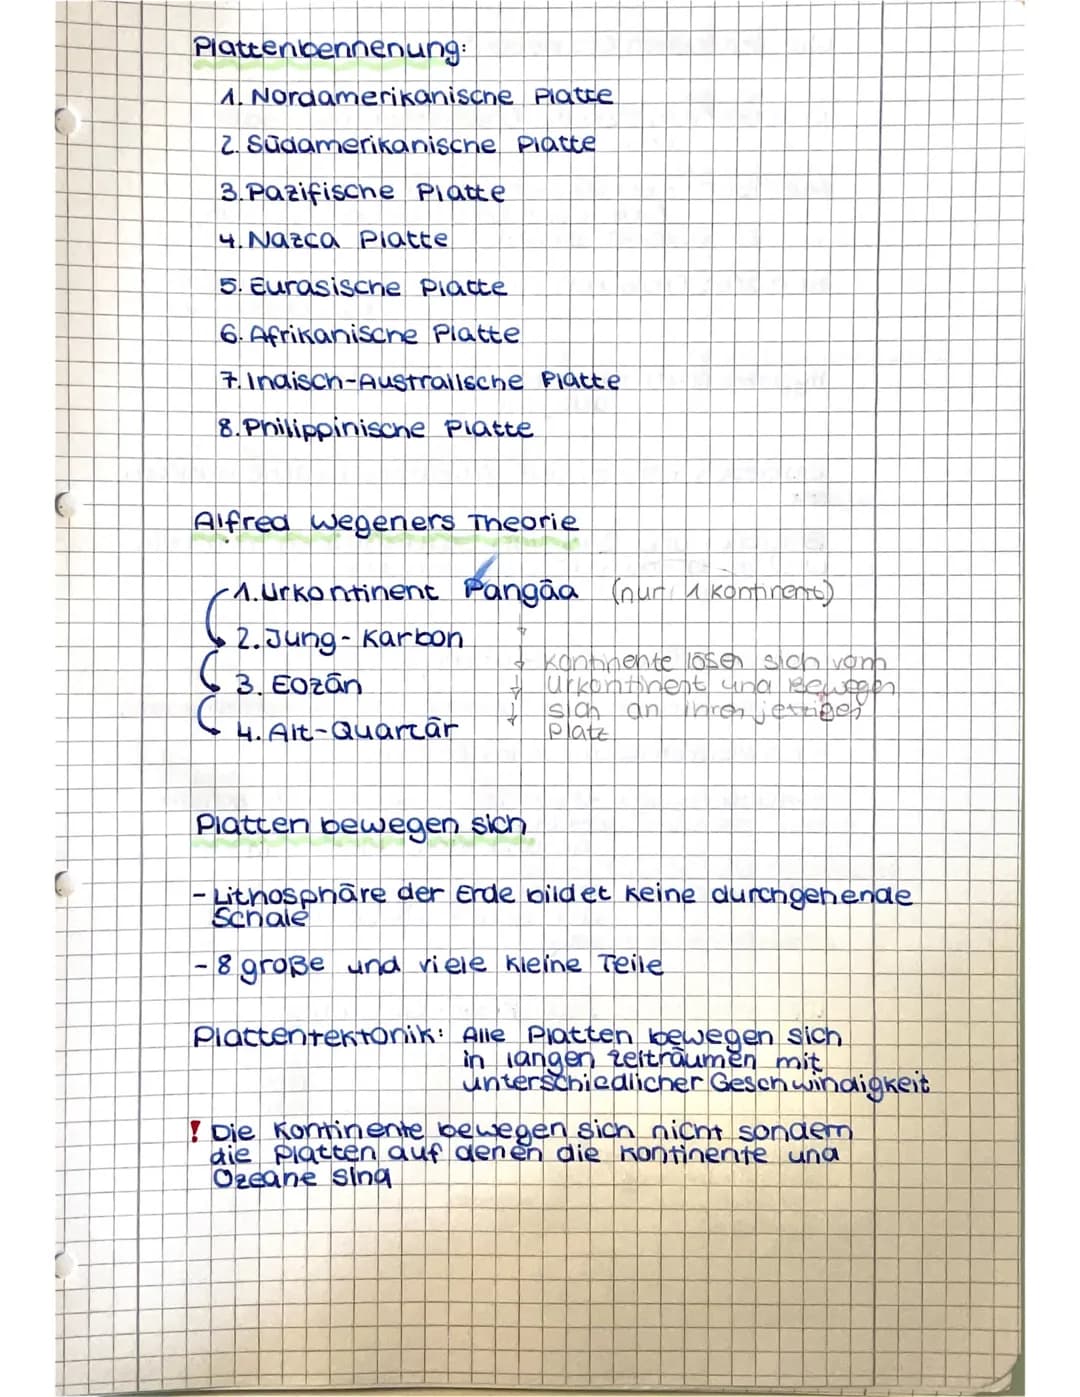 Plattenbennenung:
1. Nordamerikanische Platte
2. Südamerikanische Platte
3. Pazifische Platte
4. Nazca Platte
5. Eurasische Platte
6. Afrikanische Platte
7. Indisch-Australische Platte
8. Philippinische Platte
Alfred Wegeners Theorie
1. Urkontinent Pangäa (nur 1 Kontinent)
2. Jung-Karbon
Kontinente lösen sich vom
3. Eozän
Urkontinent und Bewegen
sich an ihren jetzigen
4. Alt-Quartär
Platz
Platten bewegen sich
- Lithosphäre der Erde bildet keine durchgehende
Schale
- 8 große und viele kleine Teile
Plattentektonik: Alle Platten bewegen sich
in langen Zeiträumen mit
unterschiedlicher Geschwindigkeit
! Die Kontinente bewegen sich nicht sondern
die Platten auf denen die Kontinente und
Ozeane sind